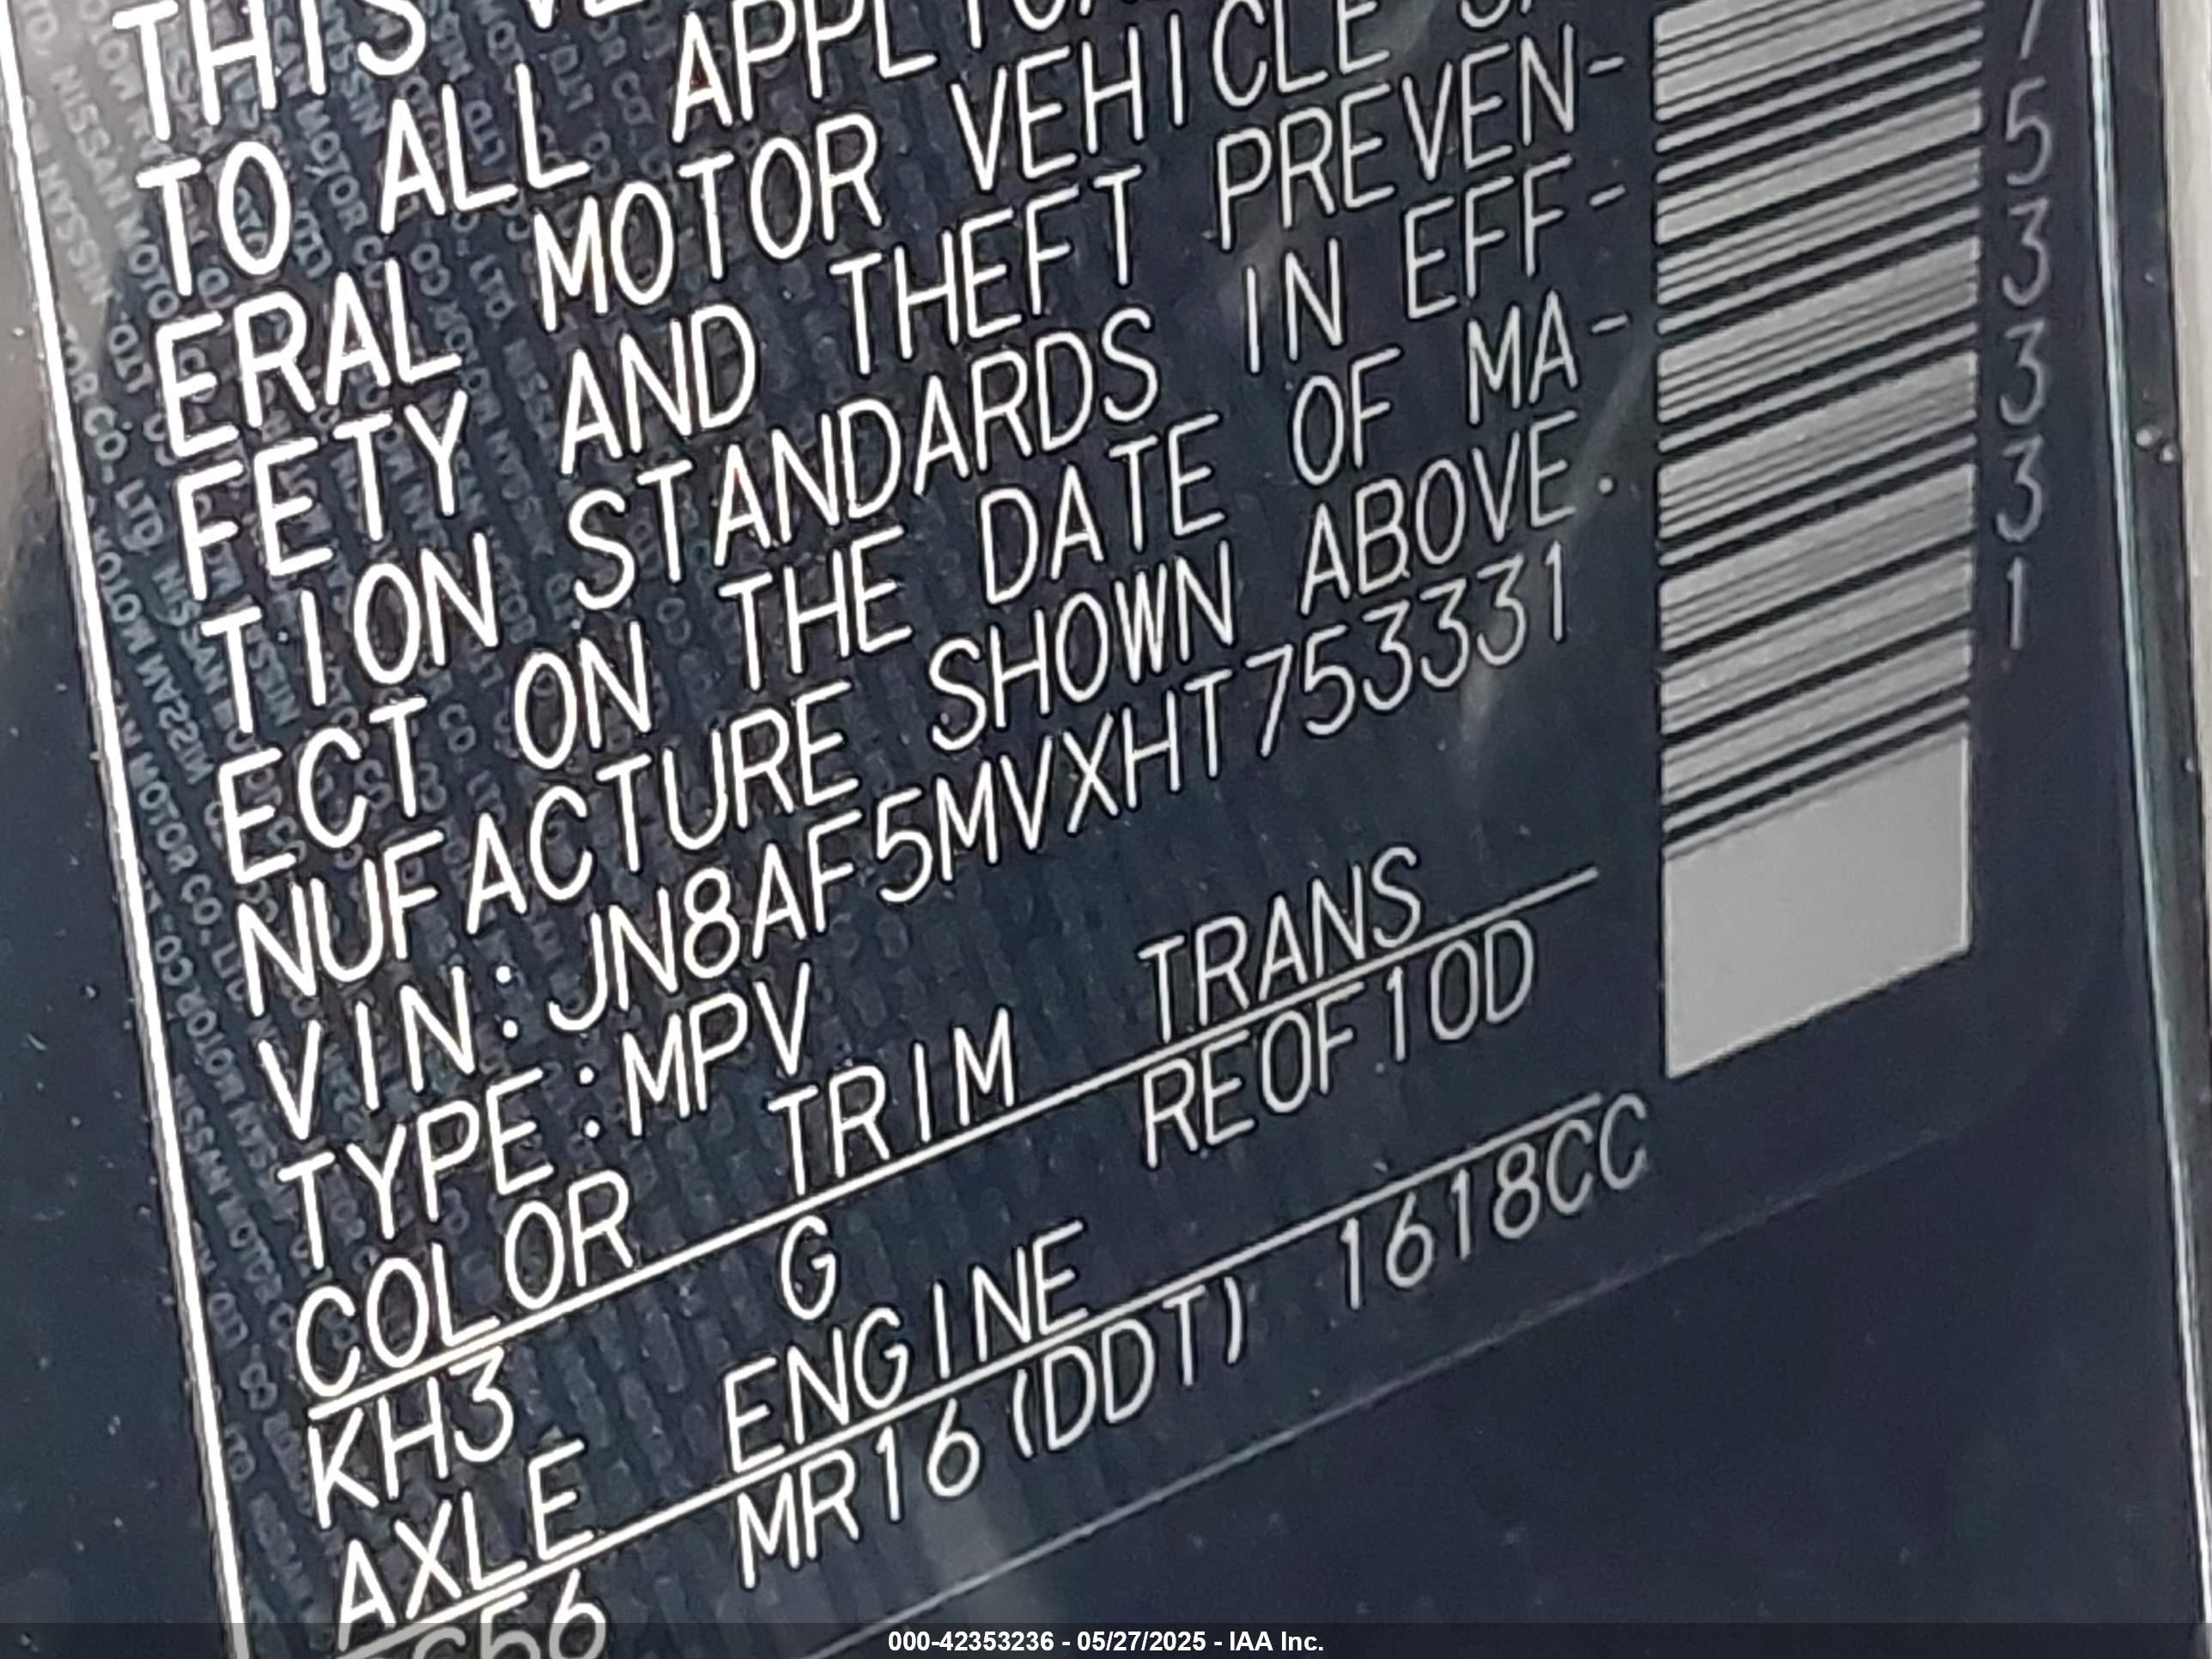 THIS
TO ALL
ERAL MOTOR VEHICLE
FETY AND THEFT PREVEN-
TION STANDARDS IN EFF-
ECT ON THE DATE OF MA-
NUFACTURE SHOWN ABOVE.
VIN:JN8AF5MVXHT753331
TYPE:MPV
COLOR TRIM TRANS
KH3 G RE0F10D
AXLE ENGINE
MR16(DDT) 1618CC
753331
NISSAN MOTOR CO., LTD.
000-42353236 - 05/27/2025 - IAA Inc.